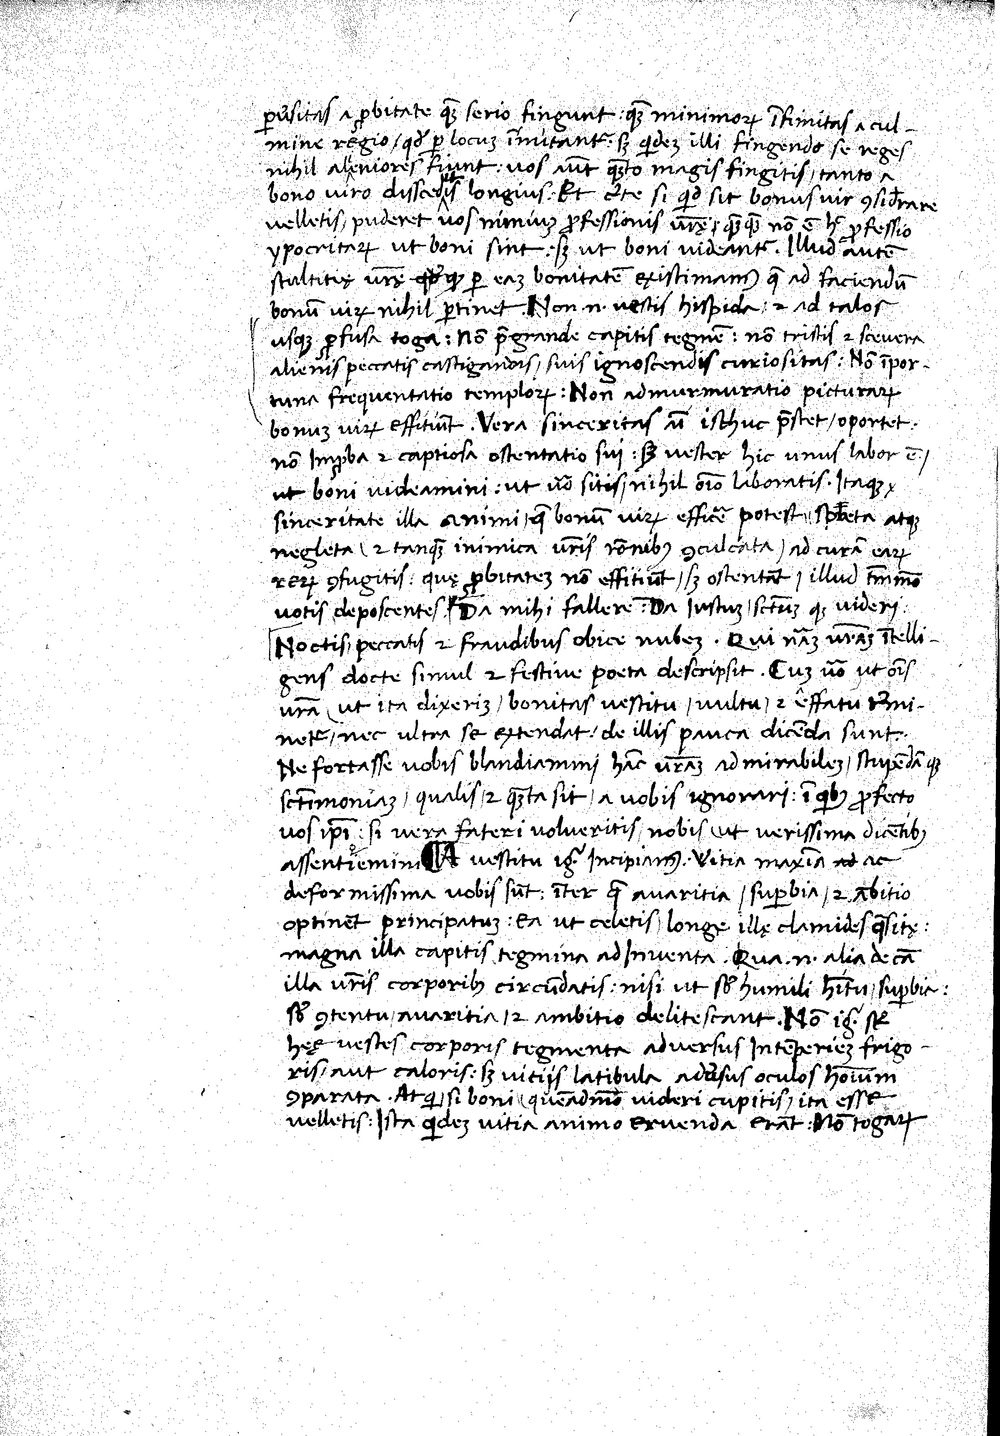 pūsitas a ꝓbitate qȝ serio fingunt : qȝ minimoꝝ īfimitas a cul-
mine regio / qd̕ ꝑ locuȝ īmitant᷑ : sȝ qͥdeȝ illi fingendo se reges
nihil alieniores fiunt : vos aūt qȝto magis fingitis / tanto a
bono viro disceditis longius. Et c̄te si qͥd sit bonus vir ꝯsid̄rare
velletis / puderet vos nimiuȝ ꝓfessionis vr̄ę / qȝqȝ nō ē h̄ ꝓfessio
ypocritaꝝ ut boni sint : sȝ ut boni videant᷑. Illud autē
stultitię vr̄ę ꝙ ꝑ eaȝ bonitatē existimamꝰ q̄ ad faciendū
bonū viꝝ nihil ꝑtinet. Non .n. vestis hispida : ⁊ ad talos
usqȝ ꝓfusa toga : Nō p̄grande capitis tegmē : nō tristis ⁊ scevera
alienis peccatis castigandis / suis ignoscendis curiositas : Nō īpor-
tuna frequentatio temploꝝ : Non admurmuratio picturaꝝ
bonuȝ viꝝ effitiūt. Vera sinceritas aū isthuc p̄stet / oportet.
nō Imꝓba ⁊ captiosa ostentatio sui : sȝ vester hic unus labor ē /
ut boni videamini : ut ūo sitis / nihil oīo laboratis. Itaqȝ
sinceritate illa animi / q̄ bonū viꝝ efficē potest / spreta atqȝ
negleta / ⁊ tanqȝ inimica vr̄is rōnibꝰ ꝯculcata / ad curā eaꝝ
reꝝ ꝯfugitis : quę ꝓbitateȝ nō effitiūt / sȝ ostentāt / illud tm̄mō
votis deposcentes. Da mihi fallere : Da Iustuȝ / sctūȝ qȝ videri.
Noctis / peccatis ⁊ fraudibus obice nubeȝ. Qui nāȝ vrāȝ ītelli-
gens docte simul ⁊ festive poeta descripsit. Cuȝ ūo ut oīs
vrā / ut ita dixeriȝ / bonitas vestitu / vultu / ⁊ effatu t̄mi-
net᷑ / nec ultra se extendat / de illis pauca dicēda sunt.
Ne fortasse vobis blandiamini hāc vrāȝ admirabileȝ / stupēdā qȝ
sctīmoniaȝ / qualis / ⁊ qȝta sit / a vobis ignorari : ī qͥbꝰ ꝓfecto
vos ipī : si vera fateri volveritis / nobis / ut verissima dicētibꝰ
assentiemini. A vestitu igͥ Incipiamꝰ. Vitia maxīa ad ac
deformissima vobis sūt : īter q̄ avaritia / suꝑbia / ⁊ ābitio
optinēt principatuȝ : Ea ut celetis / longe illę clamides q̄sitę :
magna illa capitis tegmina adInventa. Qua .n. alia de cā
illa vr̄is corporibꝰ circūdatis : nisi ut sb̕ humili hītu / suꝑbia :
sb̕ ꝯtentu / avaritia / ⁊ ambitio delitescant. Nō igͥ se
hęę vestes corporis tegmenta adversus Intēperieȝ frigo-
ris / aut caloris : sȝ vitijs latibula adūsus oculos hoīum
ꝯparata. At qͥ / si boni / quēadmō videri cupitis / ita esse
velletis : Ista qͥdeȝ vitia animo ervenda erāt : Nō togaꝝ